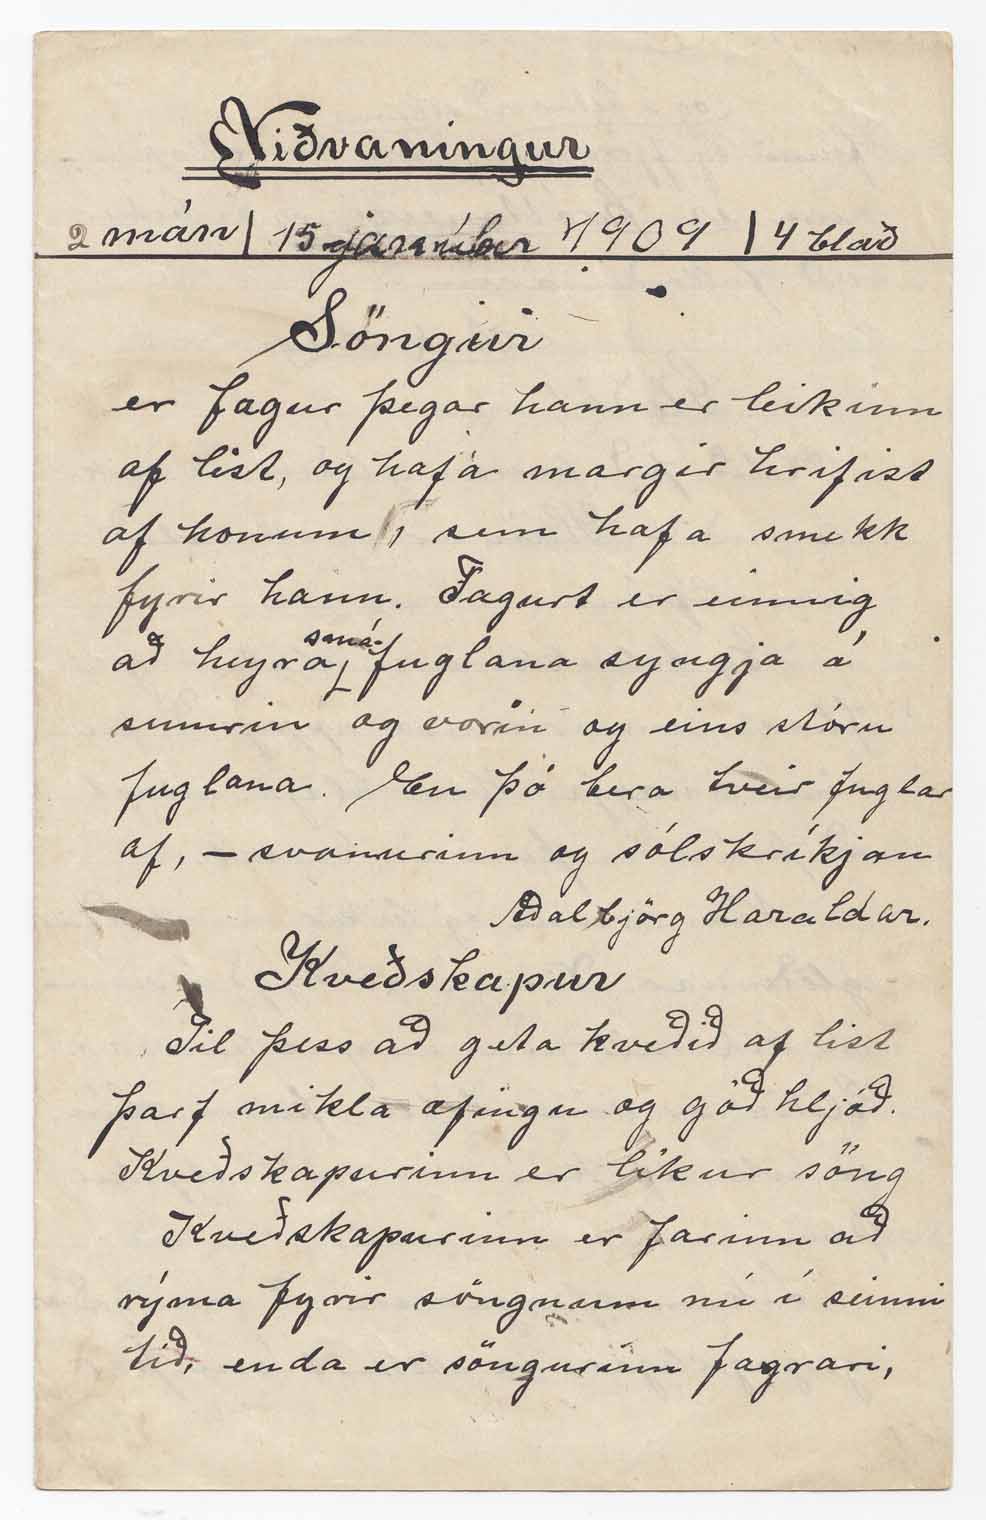 Viðvaningur
2 mán | 15 janúber 1909 | 4 blað
Söngur
er fagur þegar hann er leikinn
af list, og hafa margir hrifist
af honum, sem hafa smekk
fyrir hann. Fagurt er einnig
að heyra smá-fuglana syngja á
sumrin og vorin og eins stóru
fuglana. En þó bera tveir fuglar
af, – svanurinn og sólskríkjan
Aðalbjörg Haraldar.
Kveðskapur
Til þess að geta kveðið af list
þarf mikla æfingu og góð hljóð.
Kveðskapurinn er líkur söng
Kveðskapurinn er farinn að
rýma fyrir söngnum nú í seinni
tíð, enda er söngurinn fagrari,